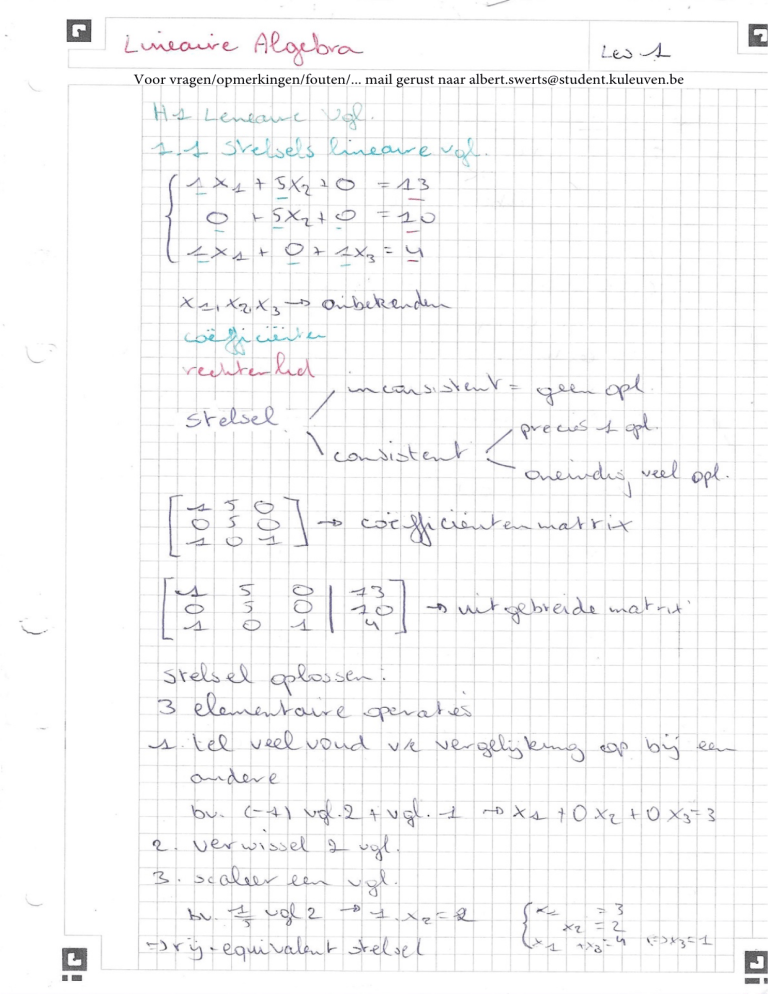 Lineaire Algebra
Les 1
Voor vragen/opmerkingen/fouten/... mail gerust naar albert.swerts@student.kuleuven.be
H1 Lineaire Vgl.
1.1 Stelsels lineaire vgl.
1x₁ + 5x₂ + 0 = 13
0 + 5x₂ + 0 = 10
1x₁ + 0 + 1x₃ = 4
x₁, x₂, x₃ → onbekenden
coëfficiënten
rechterlid
inconsistent = geen opl.
stelsel
precies 1 opl.
consistent
oneindig veel opl.
1 5 0
0 5 0 → coëfficiëntenmatrix
1 0 1
1 5 0 | 13
0 5 0 | 10 → uitgebreide matrix
1 0 1 | 4
Stelsel oplossen:
3 elementaire operaties
1. tel veelvoud v/e vergelijking op bij een
andere
bv. (-1) vgl. 2 + vgl. 1 → x₁ + 0x₂ + 0x₃ = 3
2. verwissel 2 vgl.
3. scaleer een vgl.
bv. 1/5 vgl 2 → 1.x₂ = 2
x₁ = 3
x₂ = 2
x₁ + x₃ = 4 <=> x₃ = 1
→ rij-equivalent stelsel